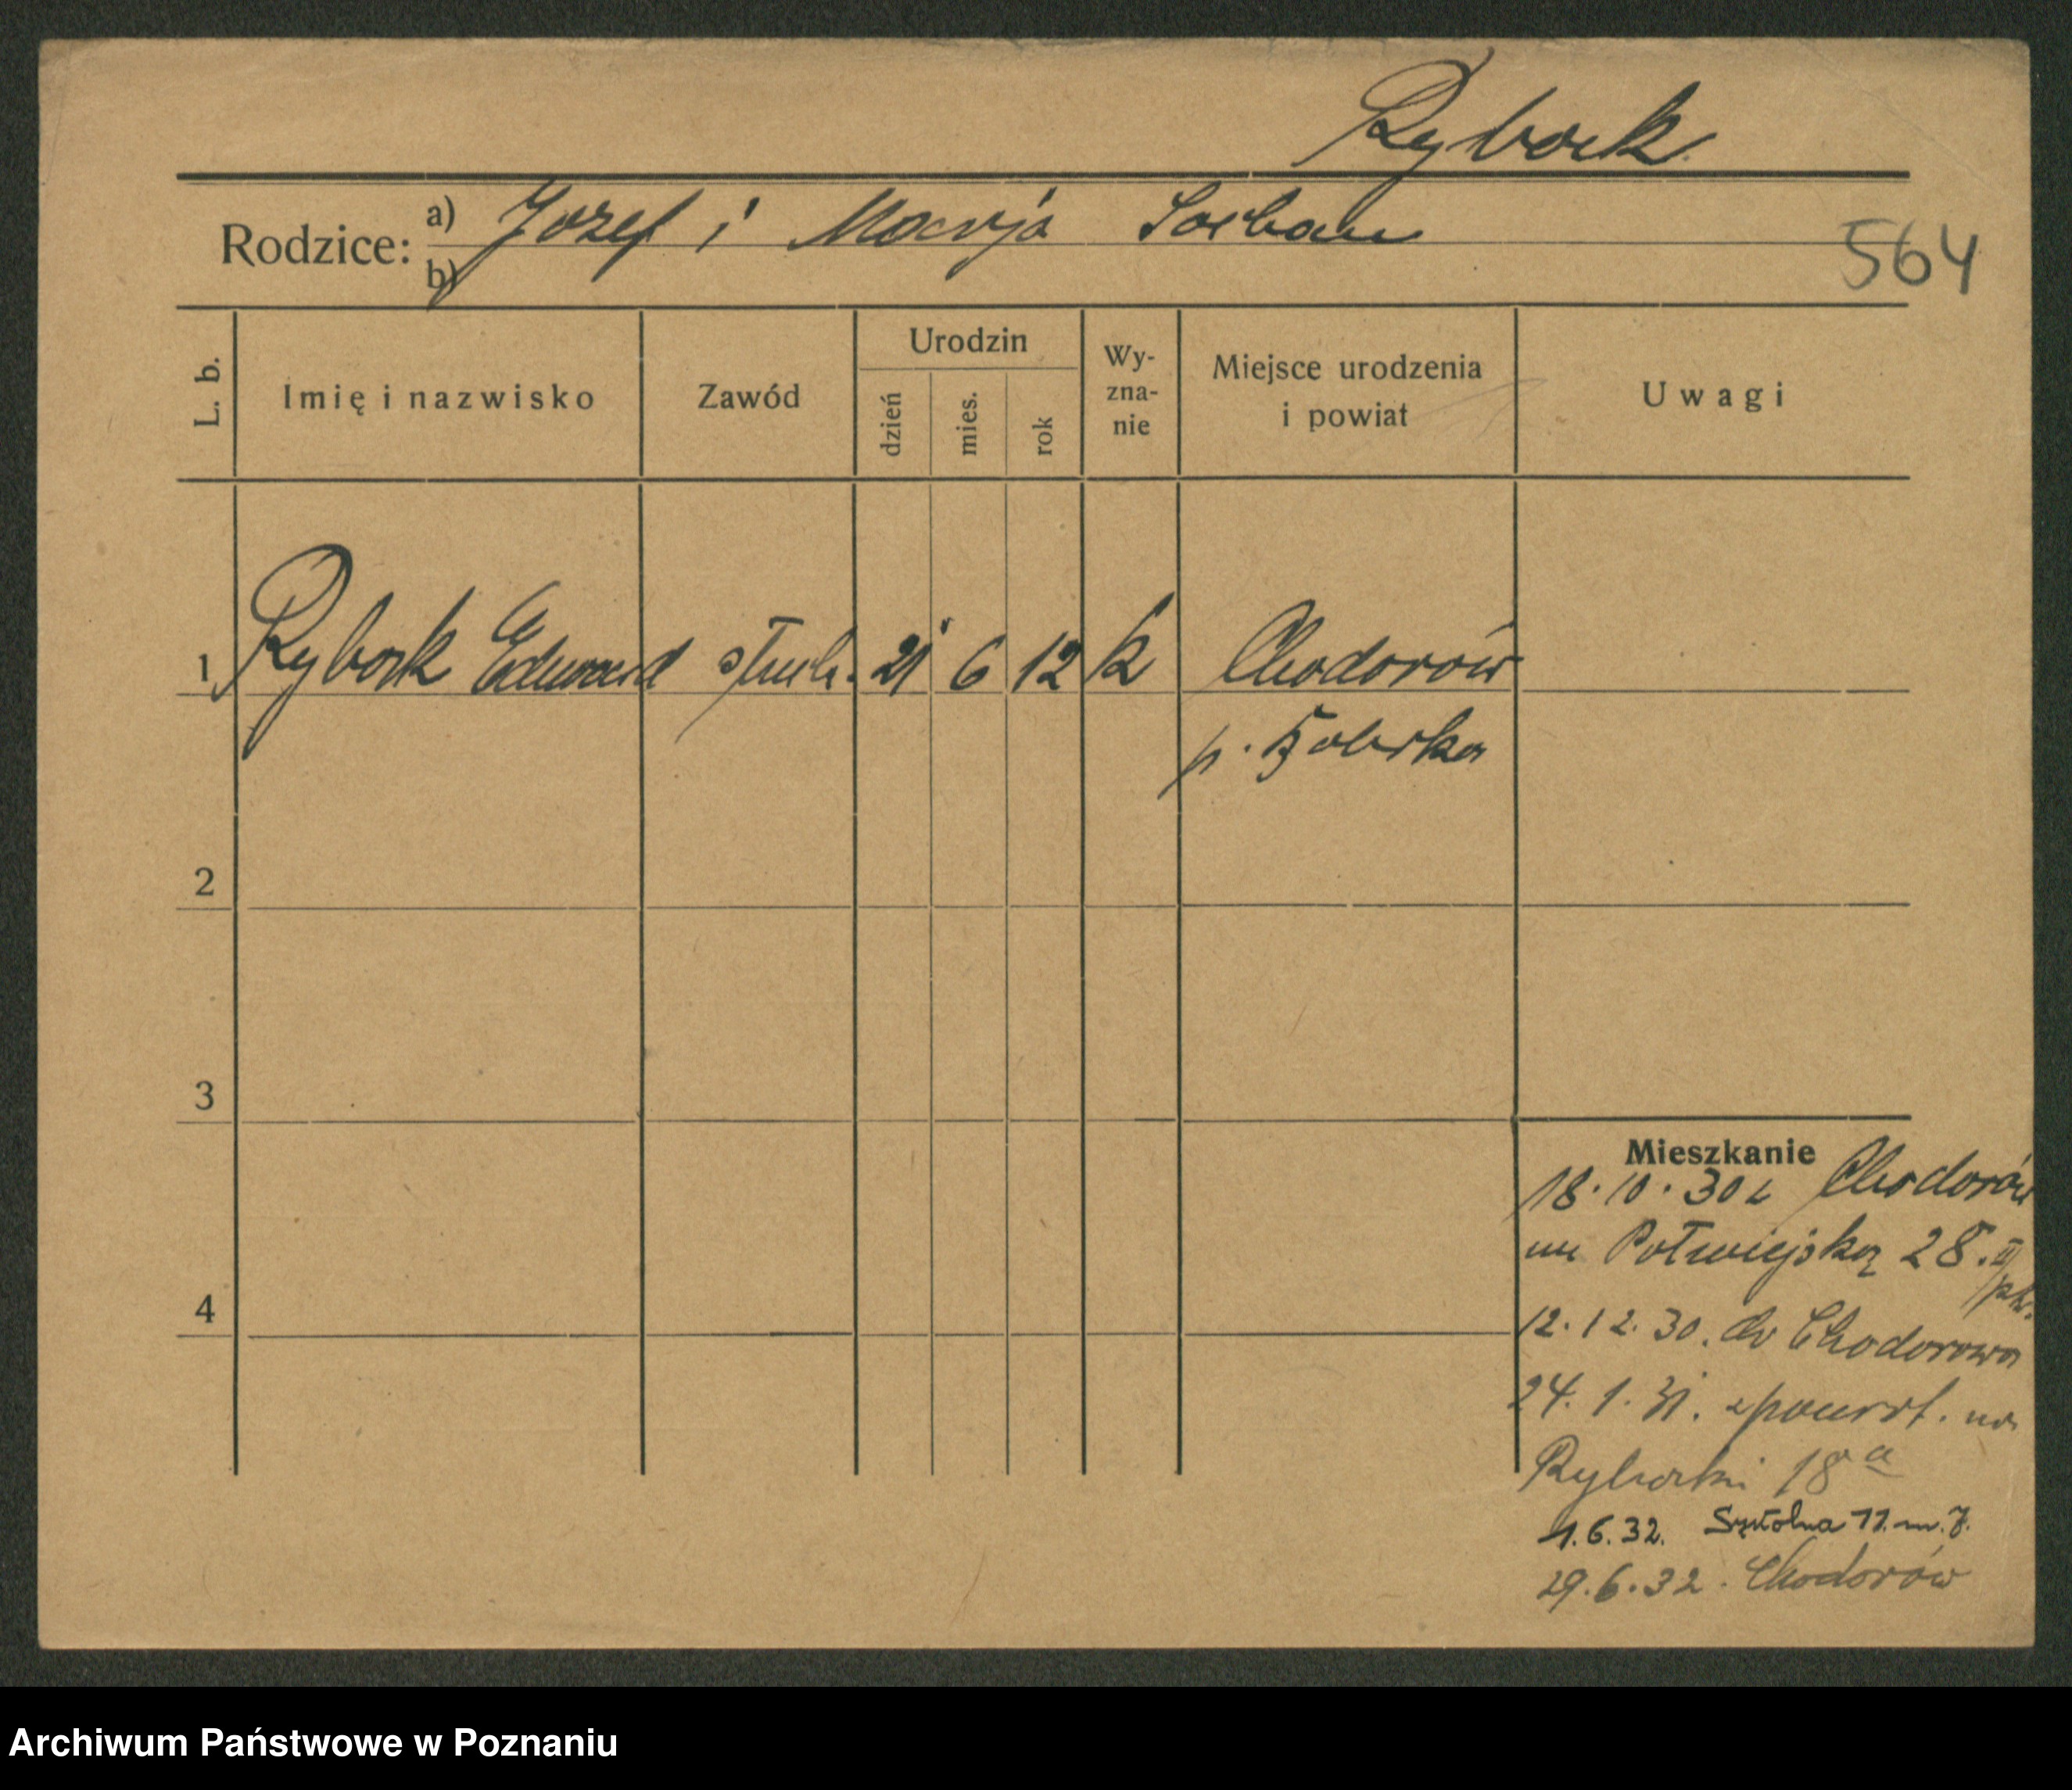 Rybork
Rodzice: a) Jozef i Marja
b)
564
L. b. Imię i nazwisko Zawód Urodzin dzień mies. rok Wy-zna-nie Miejsce urodzenia i powiat Uwagi
1 Rybork Edward stud. 21 6 12 k Chodorów
p. Bobrka
2
3
4
Mieszkanie
18.10.30 z Chodorów
na Półwiejską 28. II
ptr.
12.12.30. do Chodorowa
24.1.31. z powrot. na
Rybaki 18a
1.6.32. Szkolna 11. m. 7.
29.6.32. Chodorów
Archiwum Państwowe w Poznaniu